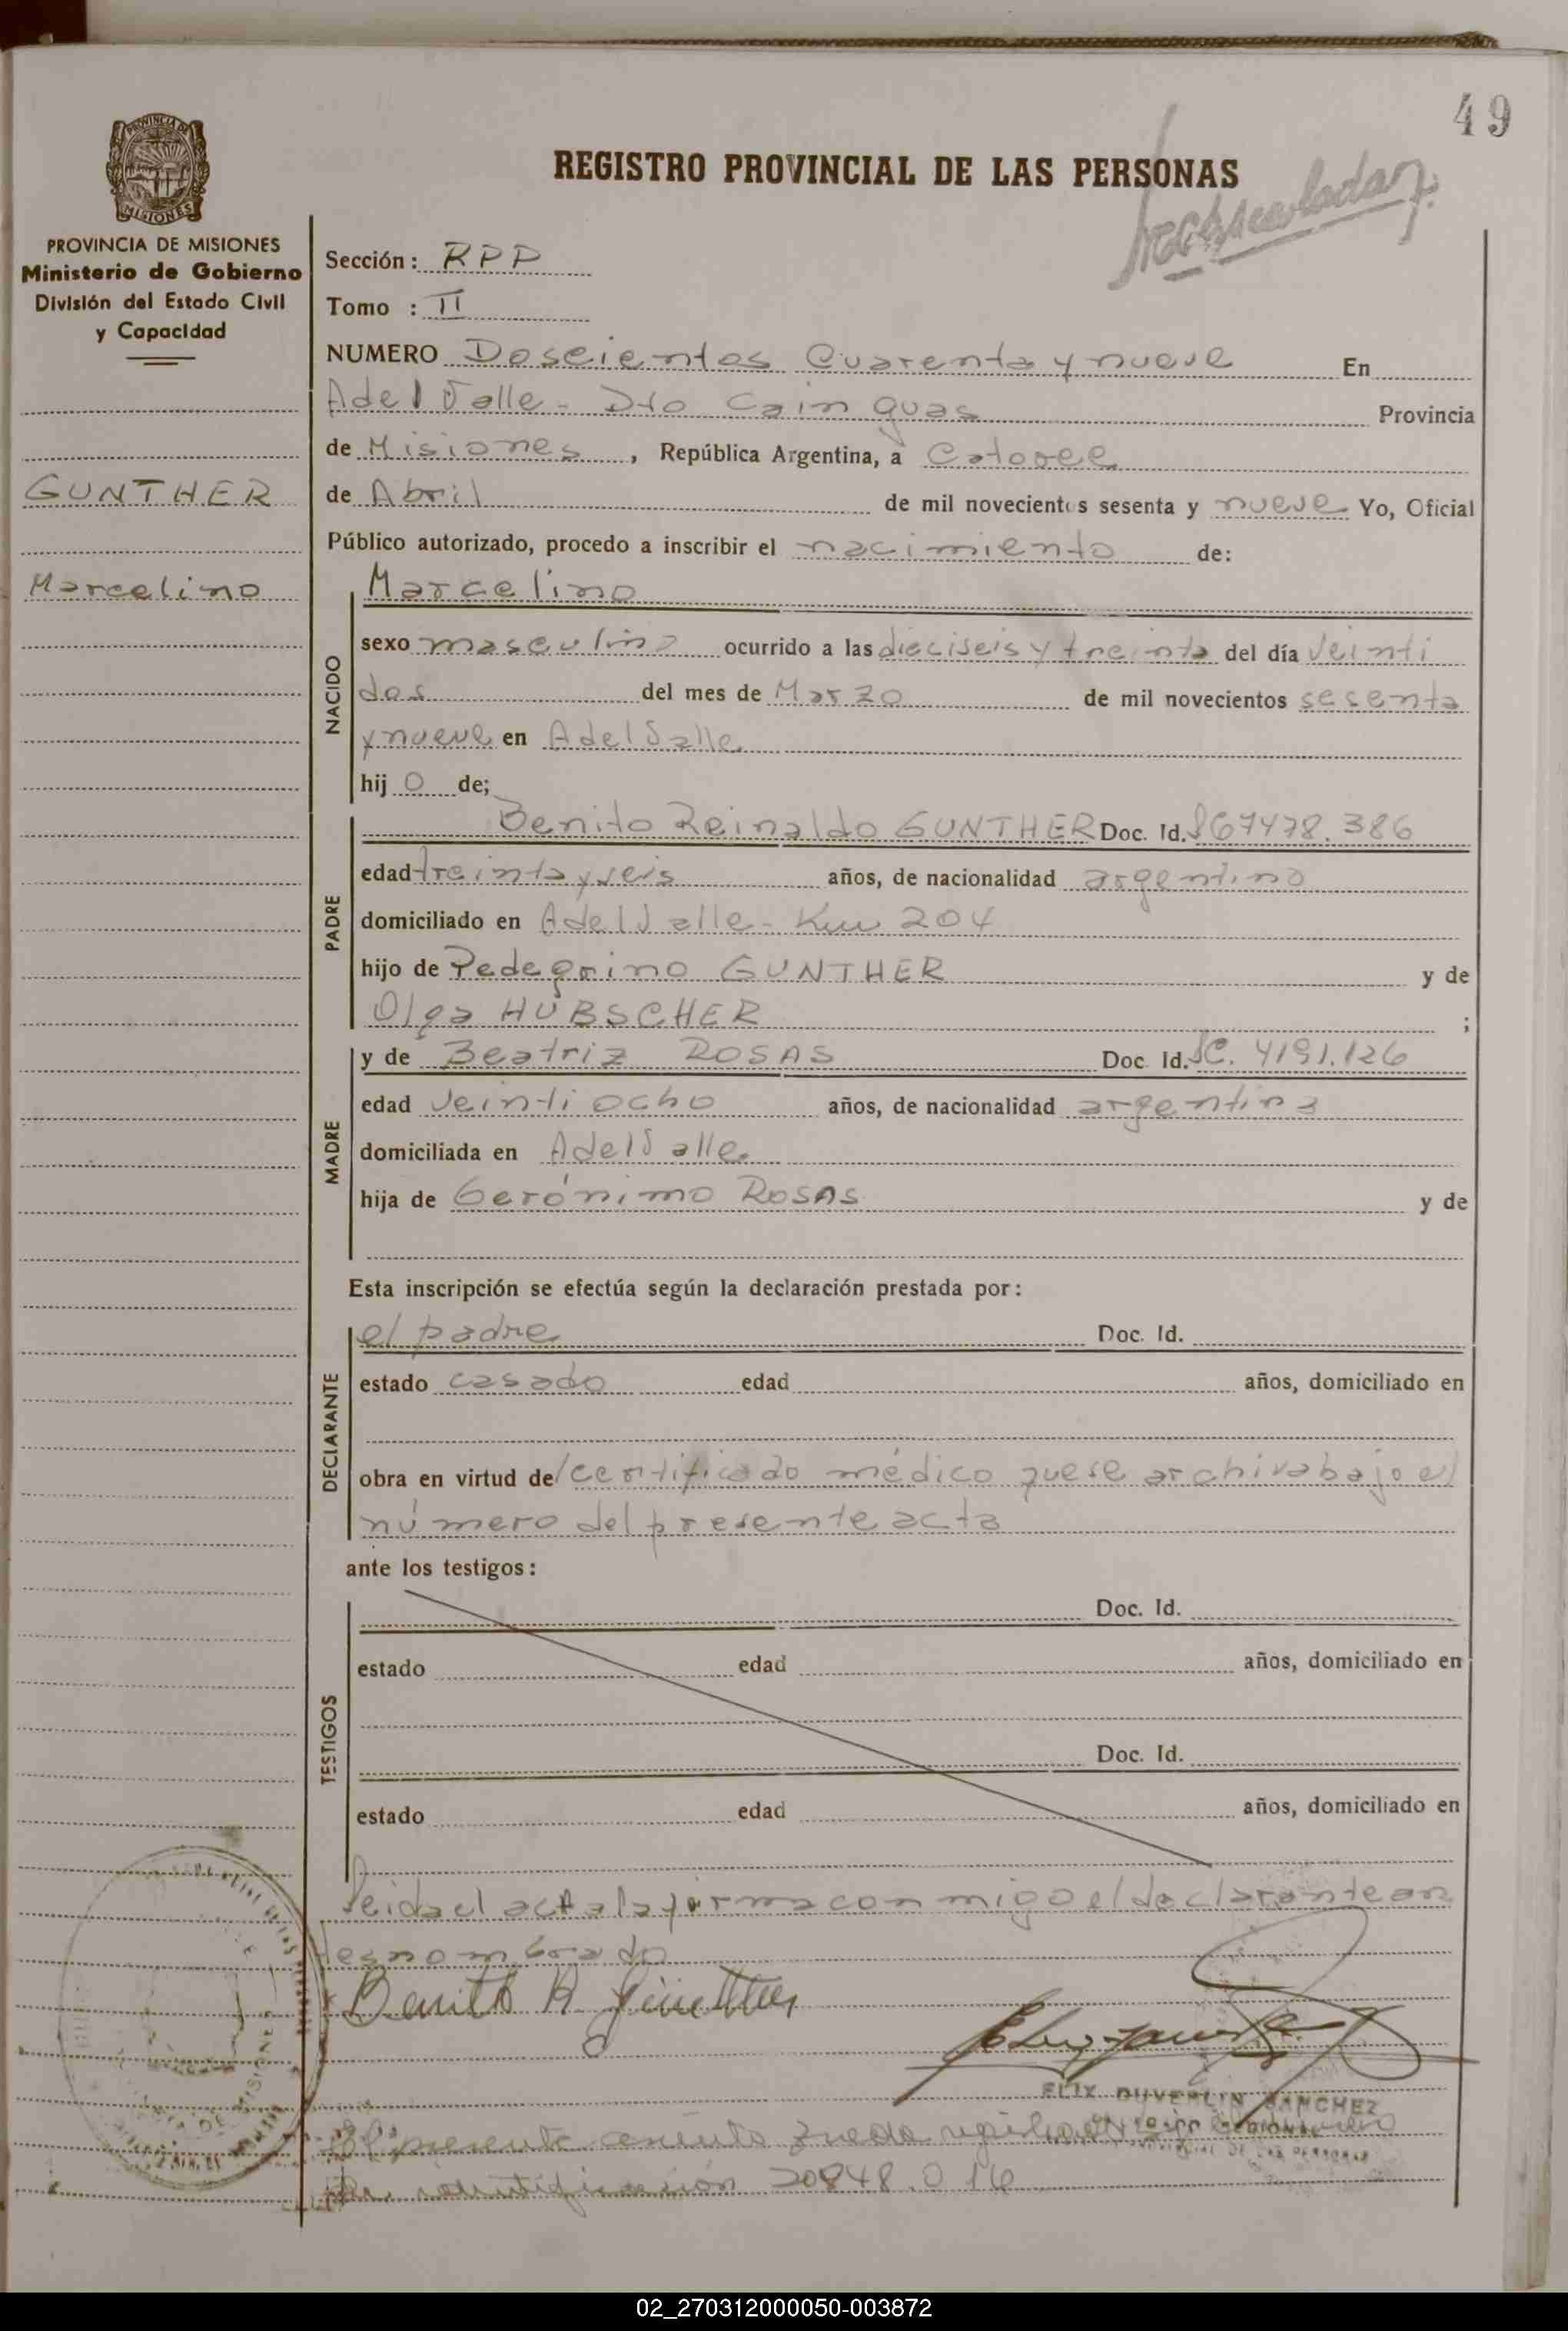 49
PROVINCIA DE
MISIONES
REGISTRO PROVINCIAL DE LAS PERSONAS
PROVINCIA DE MISIONES
Ministerio de Gobierno
División del Estado Civil
y Capacidad
GUNTHER
Marcelino
Sección: RPP
Tomo : II
NUMERO Doscientos Cuarenta y nueve En
Adel Valle - Dto Cainguas Provincia
de Misiones, República Argentina, a Catorce
de Abril de mil novecientos sesenta y nueve Yo, Oficial
Público autorizado, procedo a inscribir el nacimiento de:
NACIDO
Marcelino
sexo masculino ocurrido a las dieciseis y treinta del día Veinti
dos del mes de Marzo de mil novecientos sesenta
y nueve en Adel Valle
hij o de;
PADRE
Benito Reinaldo GUNTHER Doc. Id. 7478.386
edad treinta y seis años, de nacionalidad argentino
domiciliado en Adel Valle - Km 204
hijo de Pedegrino GUNTHER y de
Olga HUBSCHER ;
MADRE
y de Beatriz ROSAS Doc. Id. 4191.126
edad Veinti ocho años, de nacionalidad argentina
domiciliada en Adel Valle
hija de Gerónimo ROSAS y de
Esta inscripción se efectúa según la declaración prestada por:
DECLARANTE
el padre Doc. Id.
estado casado edad años, domiciliado en
obra en virtud de certificado médico que se archiva bajo el
número del presente acta
ante los testigos:
TESTIGOS
Doc. Id.
estado edad años, domiciliado en
Doc. Id.
estado edad años, domiciliado en
leida el acta la firma con migo el declarante an
tes nombrado
Benito R. Günther
FELIX DUVERLIN SANCHEZ
El presente asiento queda
20848.016
02_270312000050-003872